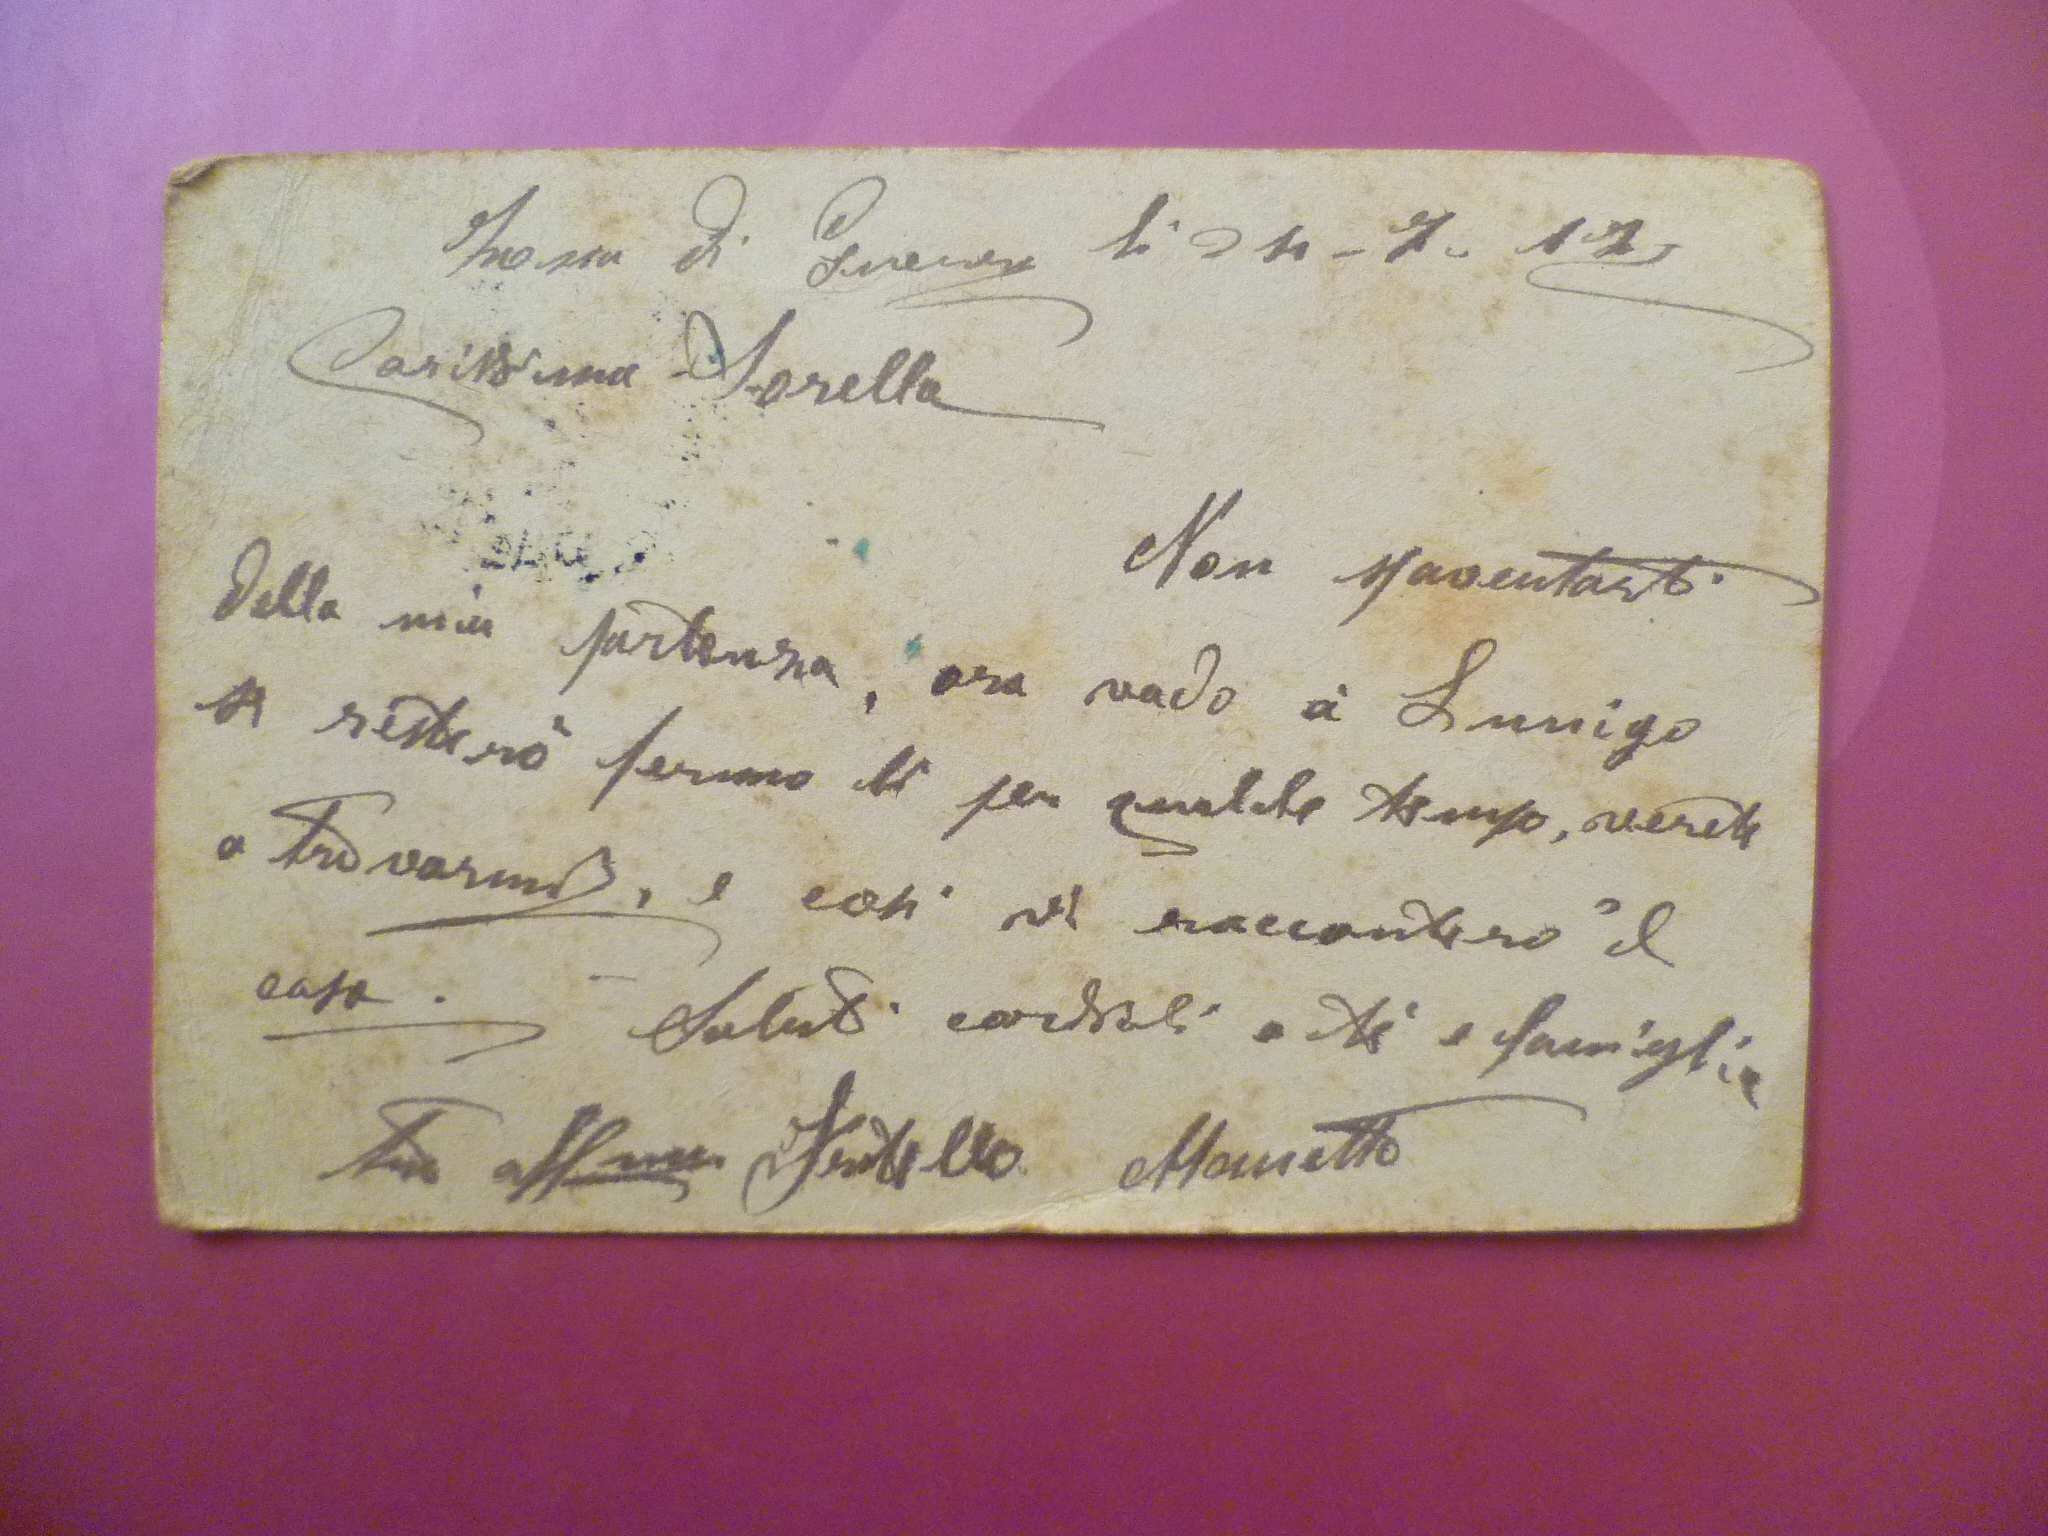 Zona di Guerra li 24-7-17
Carissima Sorella
Non spaventarti
della mia partenza, ora vado à Lunnigo
se resterò fermo li per qualche tempo, verete
a trovarmi, e così vi raccontero il
caso. Saluti cordiali a te e famiglia
tuo affmo Fratello